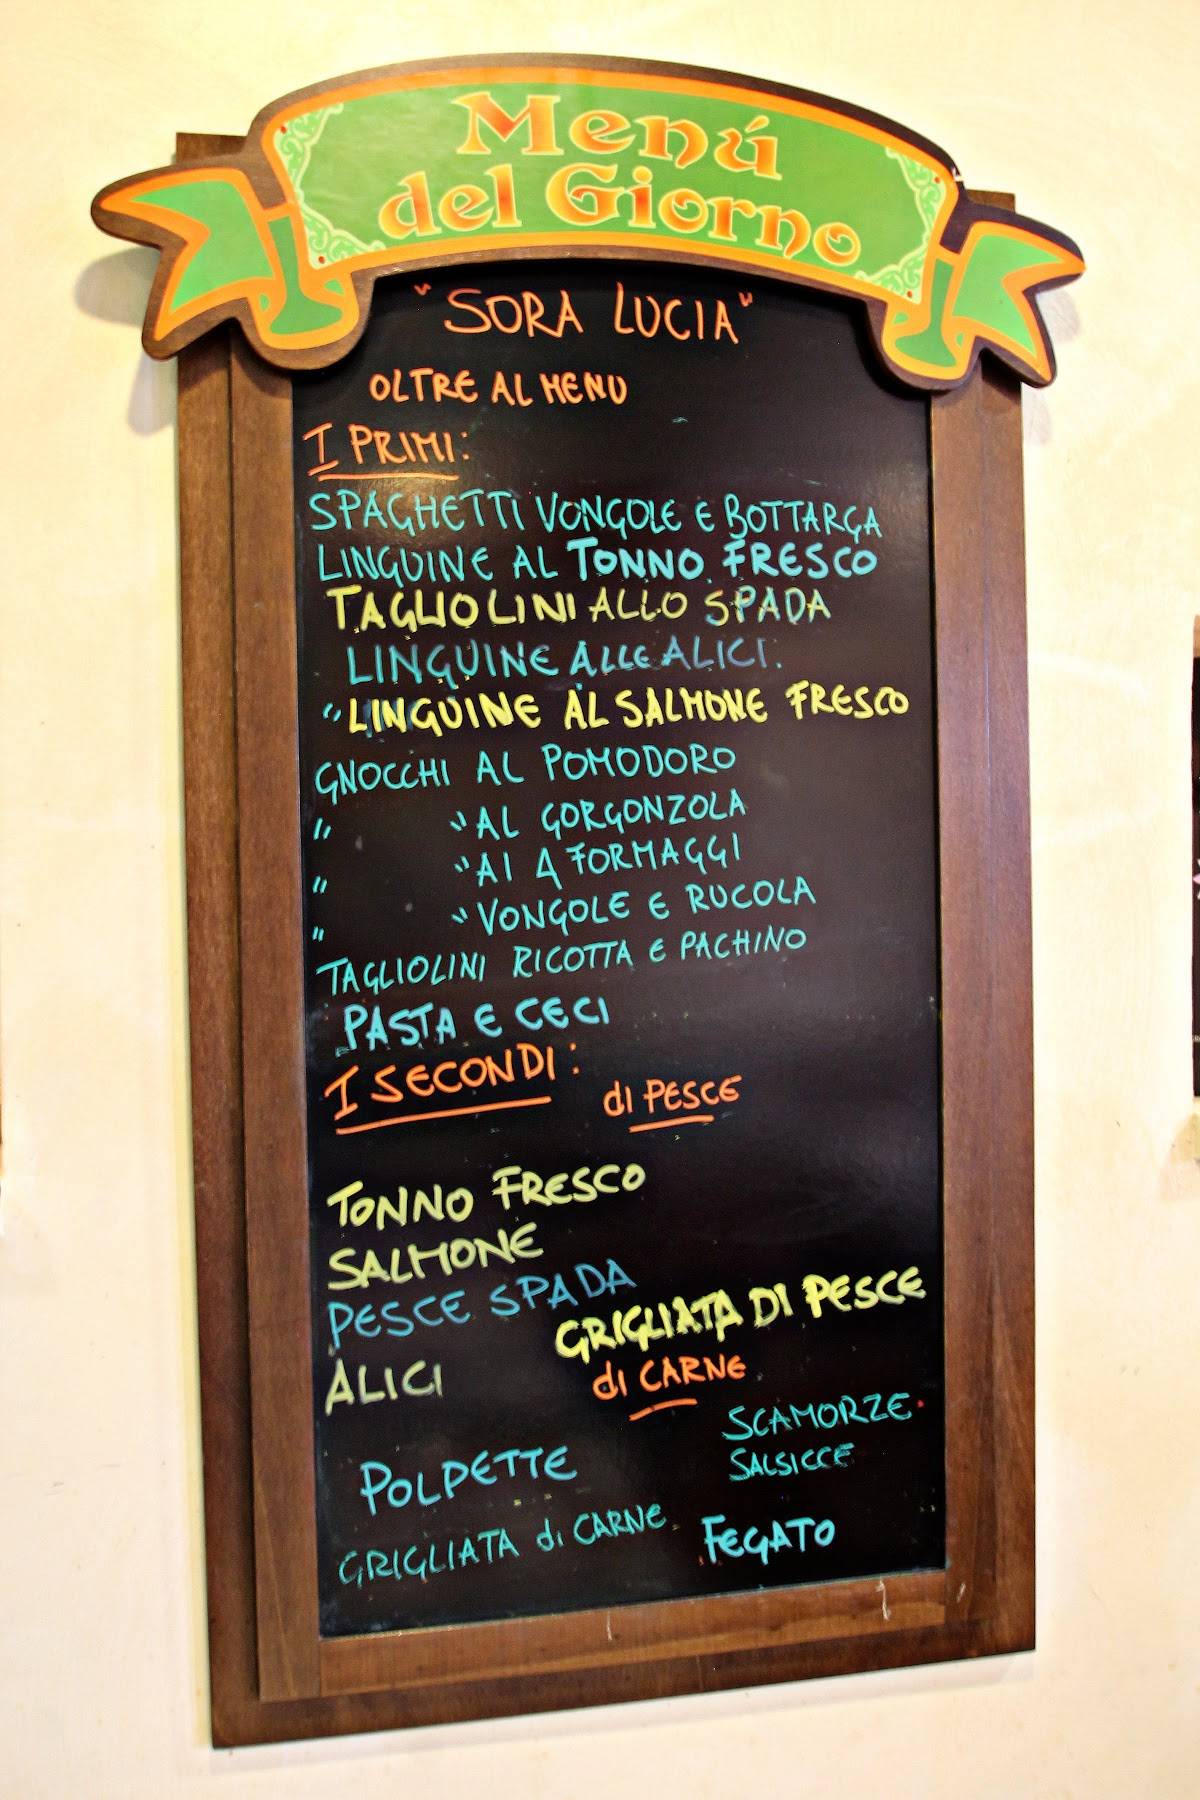 Menú
del Giorno
"SORA LUCIA"
OLTRE AL MENU
I PRIMI:
SPAGHETTI VONGOLE E BOTTARGA
LINGUINE AL TONNO FRESCO
TAGLIOLINI ALLO SPADA
LINGUINE ALLE ALICI.
" LINGUINE AL SALMONE FRESCO
GNOCCHI AL POMODORO
" " AL GORGONZOLA
" " AI 4 FORMAGGI
" " VONGOLE E RUCOLA
TAGLIOLINI RICOTTA E PACHINO
PASTA E CECI
I SECONDI:
di PESCE
TONNO FRESCO
SALMONE
PESCE SPADA
GRIGLIATA DI PESCE
ALICI
di CARNE
SCAMORZE
SALSICCE
POLPETTE
GRIGLIATA di CARNE
FEGATO